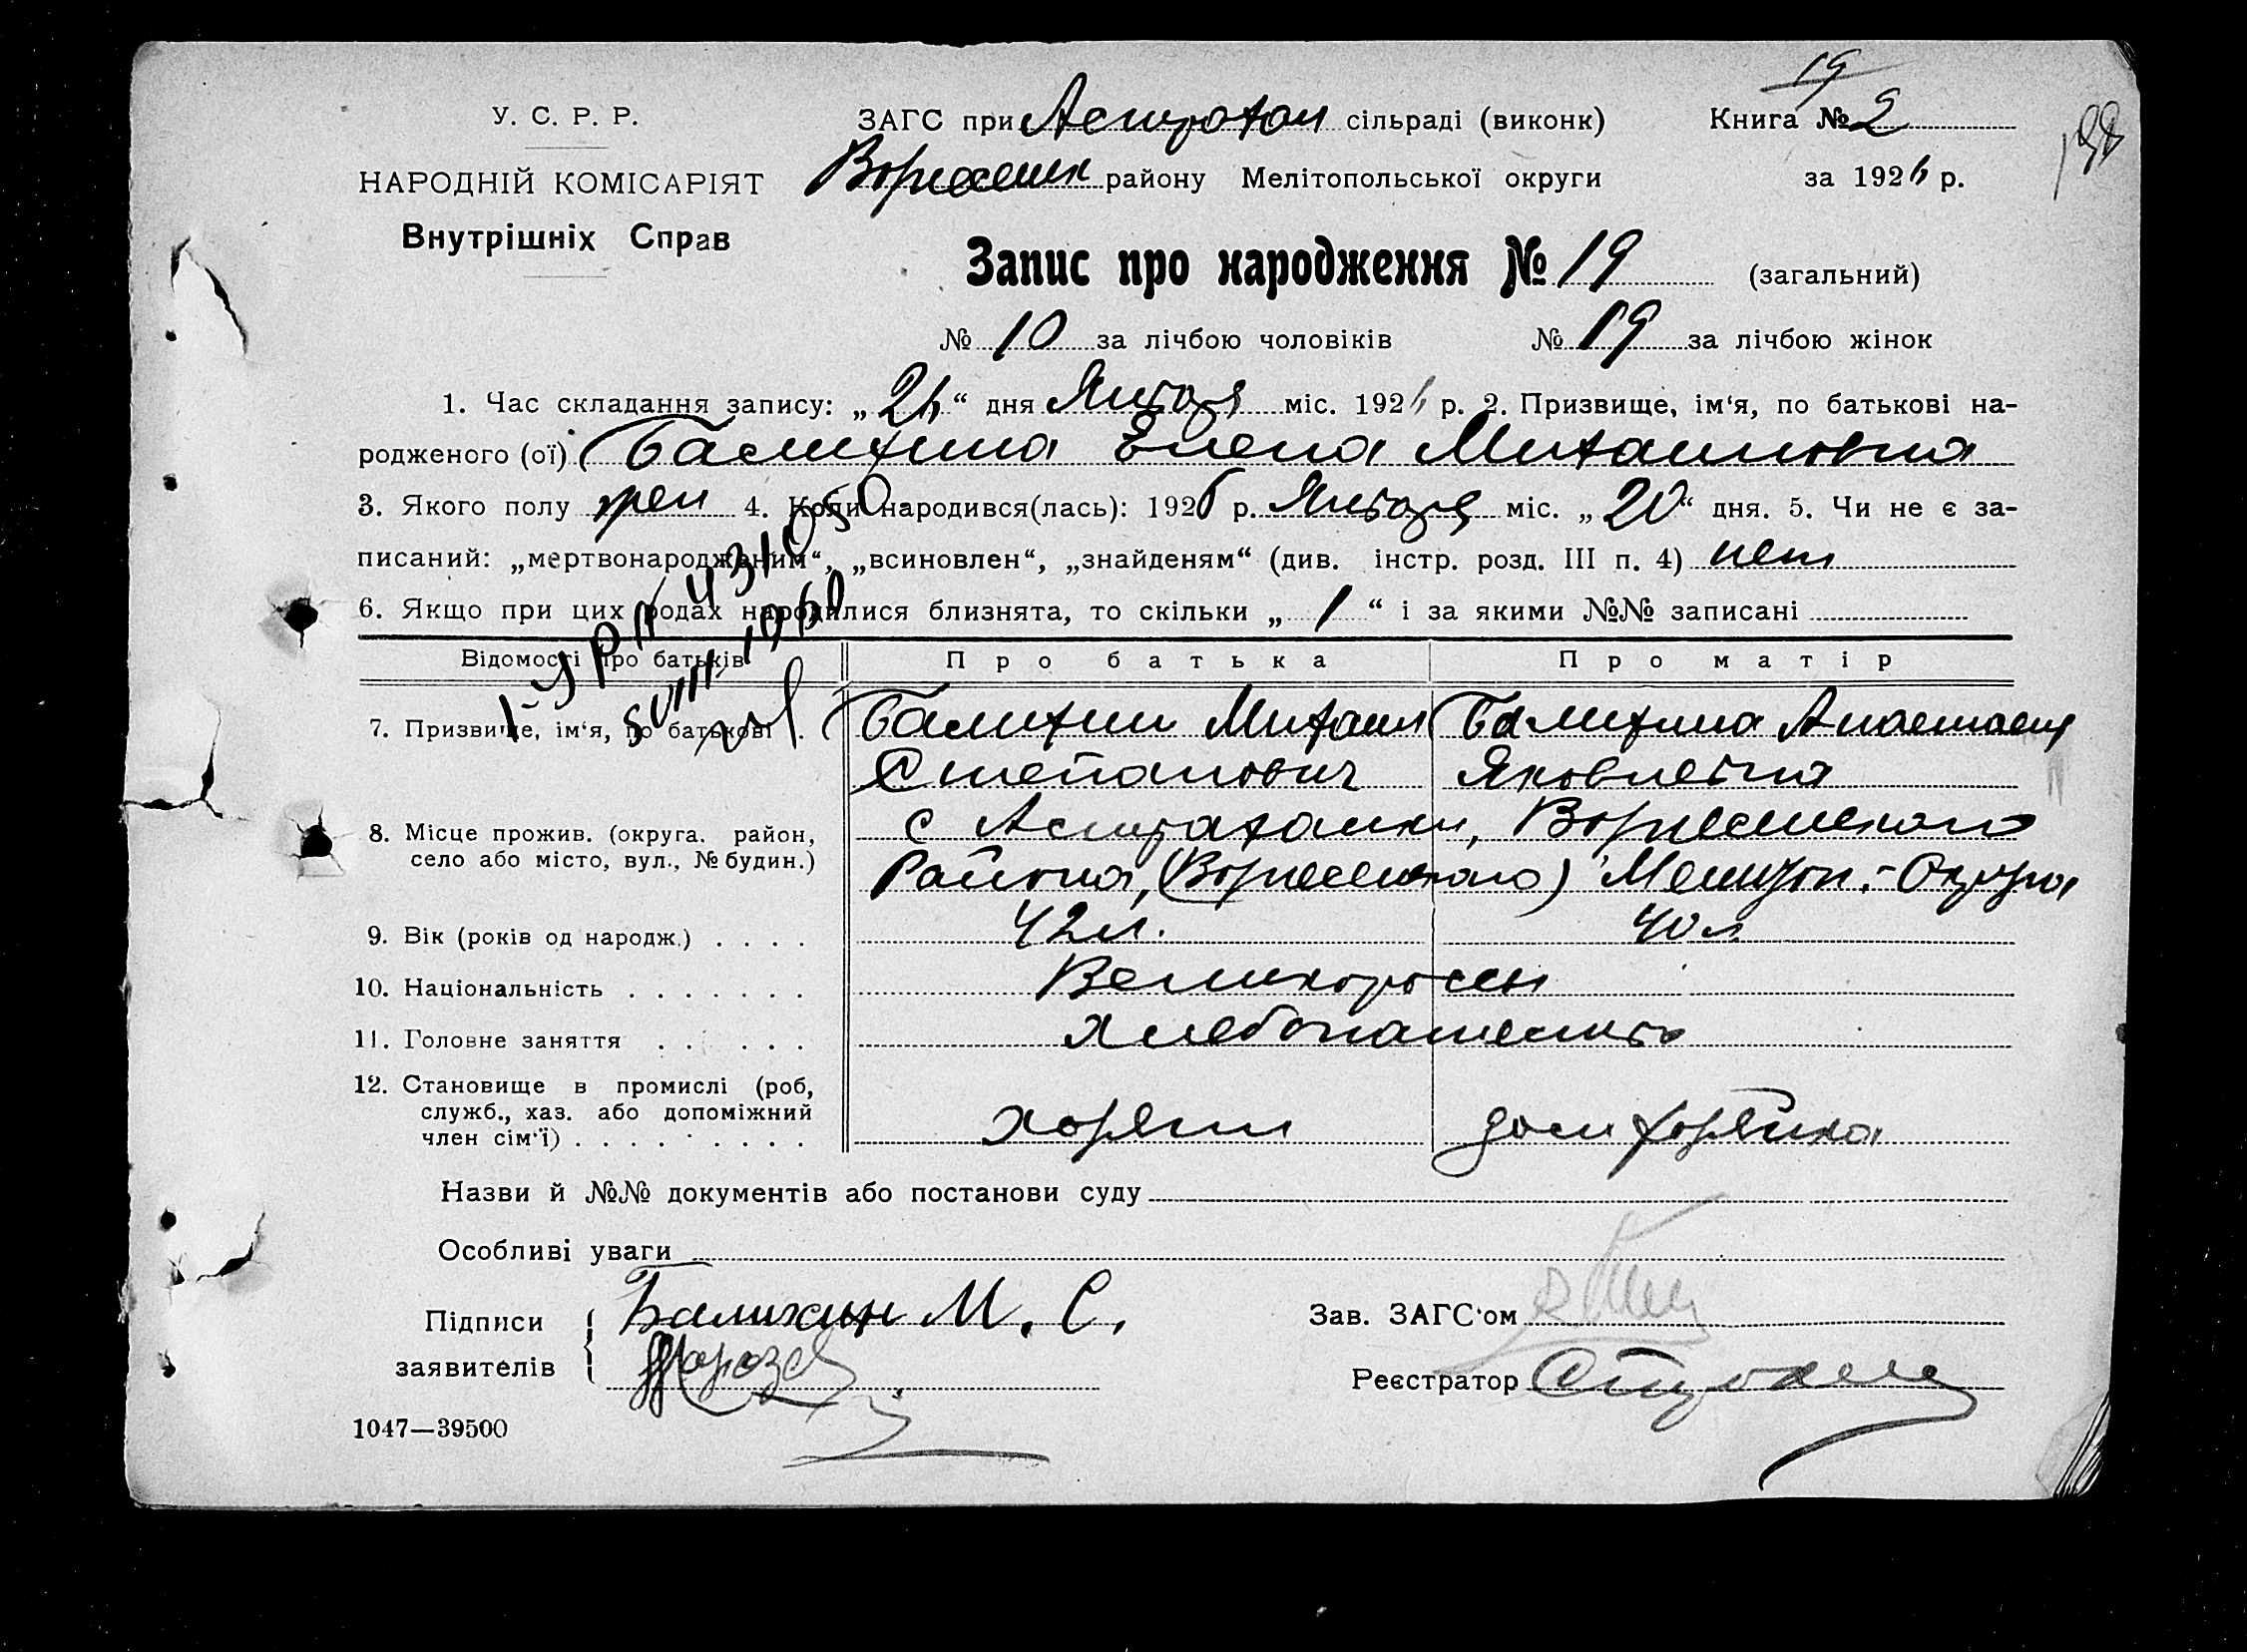 19
У. С. Р. Р.
ЗАГС при Астрахан сільраді (виконк)
Книга № 2
198
НАРОДНІЙ КОМІСАРІЯТ
району Мелітопольської округи
за 1926 р.
Внутрішніх Справ
Запис про народження № 19 (загальний)
№ 10 за лічбою чоловіків № 19 за лічбою жінок
1. Час складання запису: „26“ дня Января міс. 1926 р. 2. Призвище, ім‘я, по батькові на-
родженого (ої) Балихина Елена Михайловна
3. Якого полу жен 4. Коли народився(лась): 1926 р. Января міс. „20“ дня. 5. Чи не є за-
писаний: „мертвонародженим“, „всиновлен“, „знайденям“ (див. інстр. розд. III п. 4) нет
6. Якщо при цих родах народилися близнята, то скільки „1“ і за якими №№ записані
Відомості про батьків
Про батька
Про матір
7. Призвище, ім‘я, по батькові .
Балихин Михаил
Балихина Анастасия
Степанович
Яковлевна
8. Місце прожив. (округа. район,
село або місто, вул., № будин.)
с Астраханки,
Района, Мелитоп.-Округа
9. Вік (років од народж.) . . . .
42 л.
40 л
10. Національність . . . . . . .
Великороссы
11. Головне заняття . . . . . .
Хлебопашество
12. Становище в промислі (роб,
служб., хаз. або допоміжний
член сім‘ї) . . . . . . . . .
хозяин
дом хозяйка
Назви й №№ документів або постанови суду
Особливі уваги
Підписи
заявителів
Балихин М. С.
Зав. ЗАГС‘ом
Реєстратор
1047—39500
I-УРП 431050
5 VIII 1960